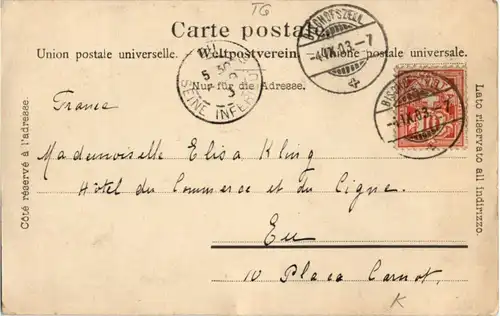 TG
Carte postale.
Union postale universelle. Weltpostverein. Unione postale universale.
Nur für die Adresse.
Côté réservé à l'adresse.
Lato riservato all indirizzo.
BISCHOFSZELL
-4.IX.03.-7
BISCHOFSZELL
-4.IX.03.-7
EU
5
SEPT
03
SEINE INFER
10
France
Mademoiselle Elisa Kling
Hôtel du Commerce et du Cigne.
Eu
10 Place Carnot.
K